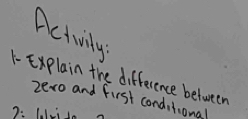 Activity:
1- Explain the difference between
zero and first conditional
2: